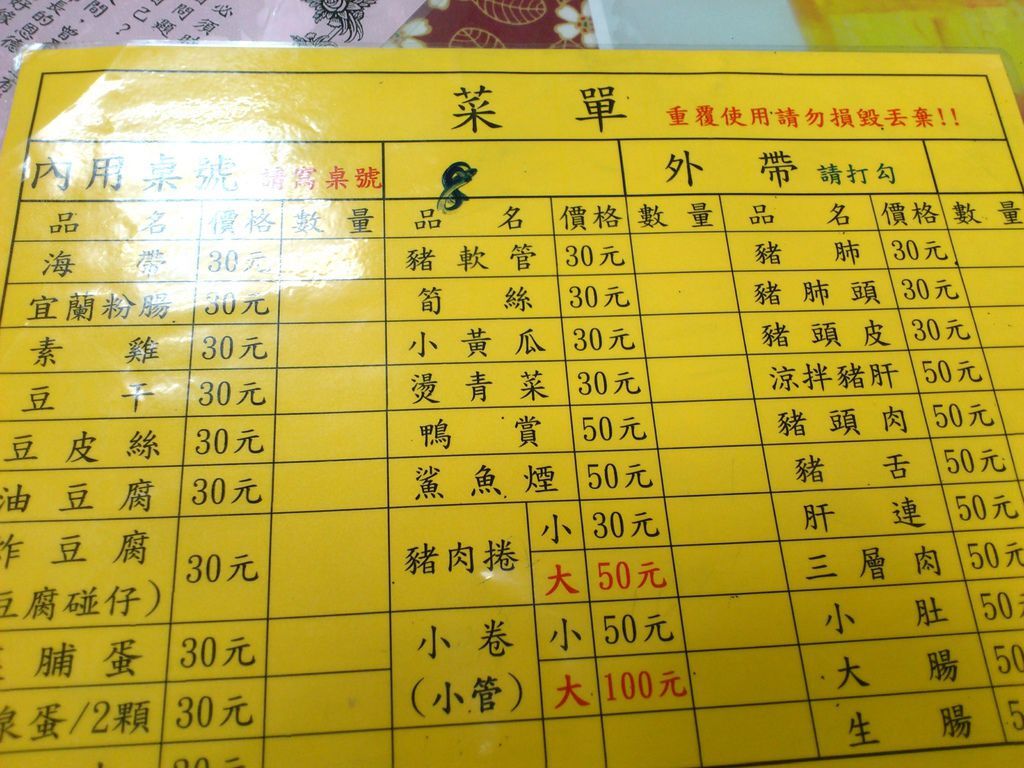 菜單 重覆使用請勿損毀丟棄!!
內用桌號 請寫桌號 8 外帶 請打勾
品名 價格 數量 品名 價格 數量 品名 價格 數量
海帶 30元 豬軟管 30元 豬肺 30元
宜蘭粉腸 30元 筍絲 30元 豬肺頭 30元
素雞 30元 小黃瓜 30元 豬頭皮 30元
豆干 30元 燙青菜 30元 涼拌豬肝 50元
豆皮絲 30元 鴨賞 50元 豬頭肉 50元
油豆腐 30元 鯊魚煙 50元 豬舌 50元
炸豆腐 30元 豬肉捲 小 30元 肝連 50元
豆腐碰仔) 大 50元 三層肉 50元
脯蛋 30元 小卷 小 50元 小肚 50
泉蛋/2顆 30元 (小管) 大 100元 大腸 50
30元 生腸 5